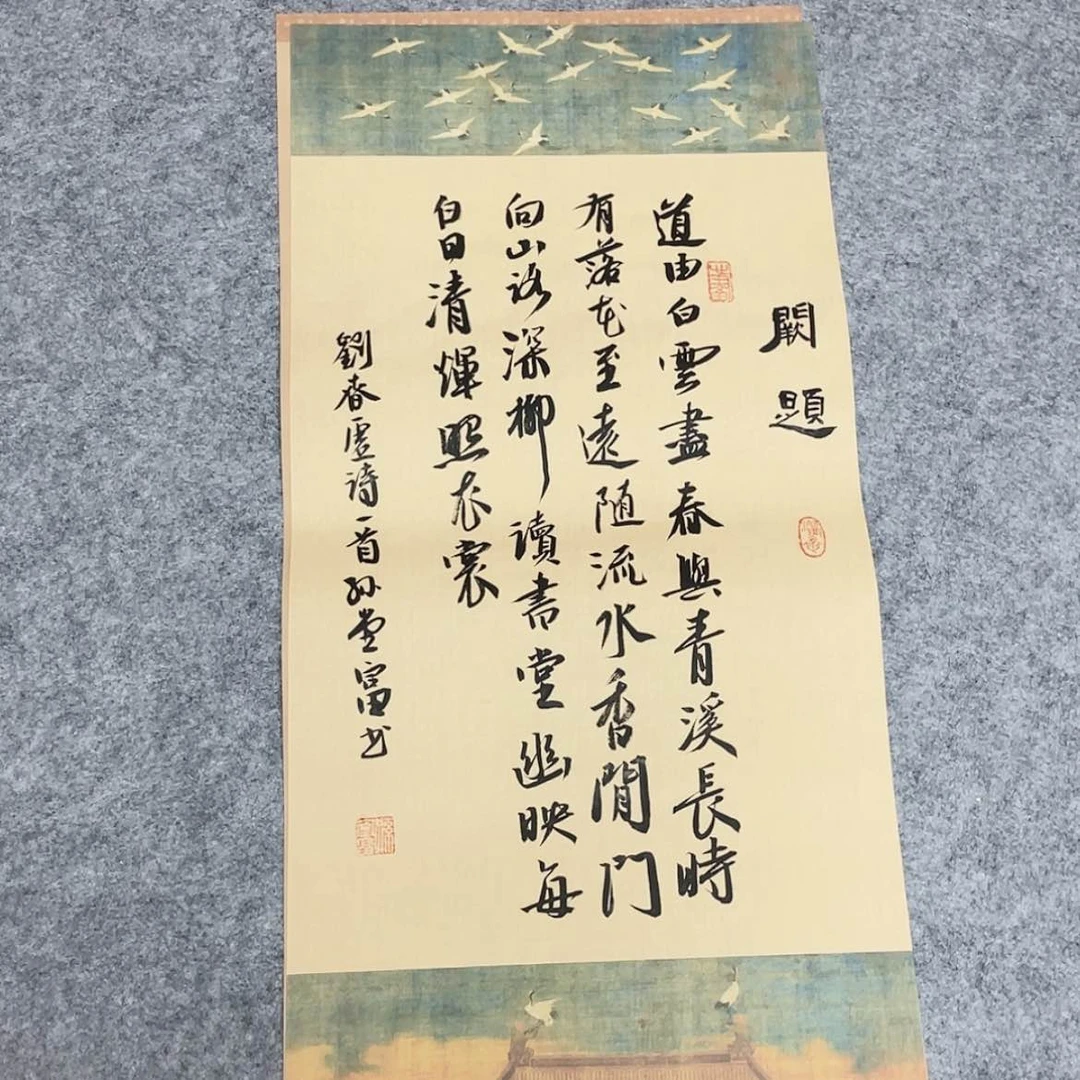 闕題
道由白雲盡春與青溪長時
有落花至遠随流水香閒門
向山路深柳讀書堂幽映每
白日清煇照衣裳
劉春虛诗一首孙堂富书